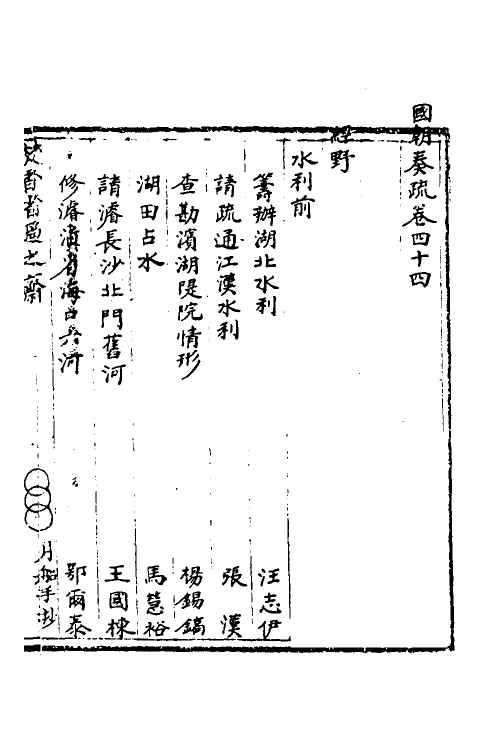 國朝奏疏卷四十四
經野
水利前
籌辦湖北水利 汪志伊
請疏通江漢水利 張漢
查勘濱湖隄院情形 楊錫鏑
湖田占水 馬慧裕
請濬長沙北門舊河 王國棟
修濬滇省海口各河 鄂爾泰
之齋 月船手抄